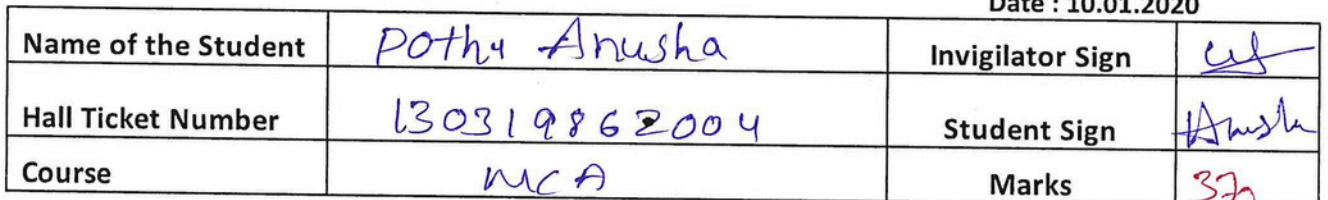 Date : 10.01.2020
Name of the Student Pothu Anusha Invigilator Sign
Hall Ticket Number 130319862004 Student Sign Anusha
Course MCA Marks 37